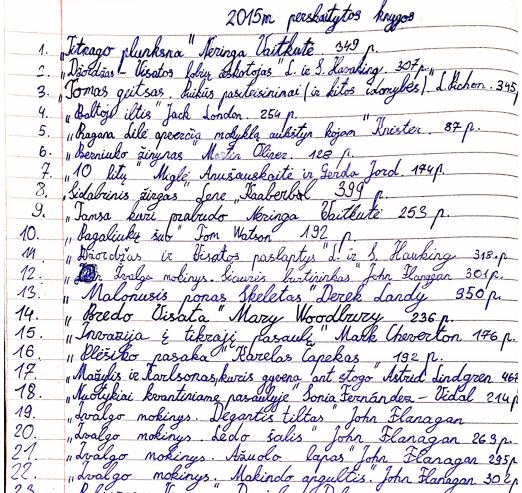 2015m perskaitytos knygos
1. „Titrago plunksna" Neringa Vaitkutė 349 p.
2. „Džordžas - Visatos lobių ieškotojas" L. ir S. Hawking 307p.
3. „Tomas Geitsas. Puikūs pasiteisinimai (ir kitos idomybės)" L. Pichon. 345p
4. „Baltoji iltis" Jack London. 254 p.
5. „Ragana Lilė apverčia mokyklą aukštyn kojom" Knister. 87 p.
6. „Berniuko žinynas" Martin Oliver. 128 p.
7. „10 litų" Miglė Anušauskaitė ir Gerda Jord. 174p.
8. „Sidabrinis žirgas" Lene Kaaberbøl 399 p.
9. „Tamsa kuri prabudo Neringa Vaitkutė 253 p.
10. „Pagaliukų šuo" Tom Watson 192 p.
11. „Džordžas ir Visatos paslaptys" L. ir S. Hawking 318p.
12. „Žvalgo mokinys. Šiaurės burtininkas" John Flanagan 301p.
13. „Malonusis ponas Skeletas" Derek Landy 350 p.
14. „Bredo Visata" Mary Woodbury 236 p.
15. „Invazija į tikrąjį pasaulį" Mark Cheverton 176 p.
16. „Plėšiko pasaka" Karelas Čapekas 192 p.
17. „Mažylis ir Karlsonas, kuris gyvena ant stogo" Astrid Lindgren 467
18. „Nuotykiai kvantiniame pasaulyje" Sonia Fernández - Vidal 214p
19. „Žvalgo mokinys. Degantis tiltas" John Flanagan
20. „Žvalgo mokinys. Ledo šalis" John Flanagan 263p.
21. „Žvalgo mokinys. Ąžuolo lapas" John Flanagan 295p
22. „Žvalgo mokinys. Makindo angultis". John Flanagan 302p